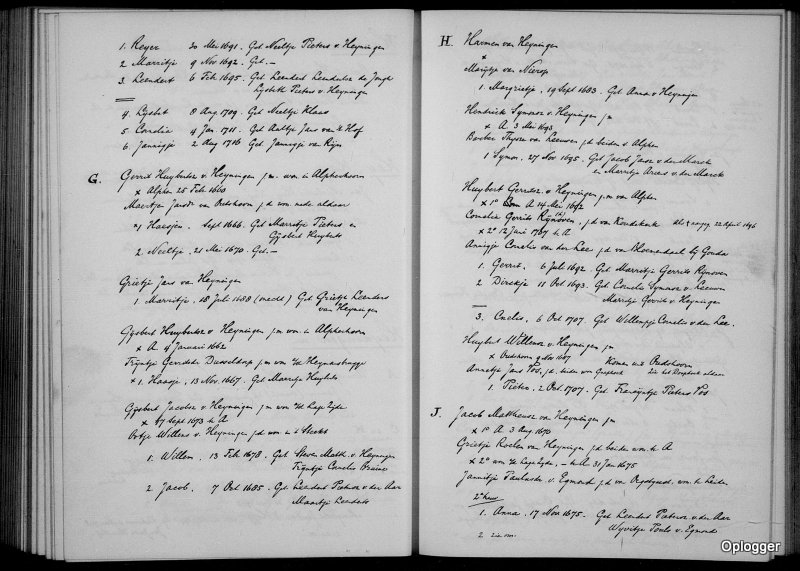 1. Reyer 20 Mei 1691. Get Neeltje Pieters v Heyningen
2 Marritje 9 Nov 1692. Get. —
3. Leendert 6 Feb 1695. Get Leendert Leendertse de Jongh
Lysbeth Pieters v Heyningen
4. Lysbet 8 Aug 1709. Get Neeltje Klaas
5 Cornelia 4 Jan 1711. Get Aaltje Jans van 't Hof
6. Jannigje 2 Aug 1716 Get Jannigje van Rijn
G. Gerrit Huybertsz v Heyningen jm. won in Alphenhoorn
x Alphen 25 Feb 1660
Maertje Jansdr van Oudshoorn jd van mede aldaar
Haesjen. Sept 1666. Get Marritje Pieters en
Gijsbert Huyberts
2 Neeltje. 21 Mei 1670. Get. —
Grietje Jans van Heyningen
1 Marritje. 18 Juli 1688 (onecht) Get Grietje Leenders
van Heyningen
Gijsbert Huybertsz v Heyningen jm won. in Alphenhoorn
x A. 4 Januari 1662
Trijntje Gerrits Dusseldorp jm van
x 1. Haasje, 13 Nov. 1667. Get Marritje Huyberts
Gijsbert Jacobsz v Heyningen jm won o/d Lage Zijde
x 17 Sept 1673 te A
Willems v. Heyningen jd won in 't
1. Willem. 13 Feb 1678. Get Steven Matth. v. Heyningen
Trijntje Cornelis
2 Jacob. 7 Oct 1685. Get Leendert Pietersz v der Aar
Maartje Leenderts
H. Harmen van Heyningen
x
Marijtje van Nierop
1 Margrietje, 19 Sept 1683. Get Anna v Heyningen
Hendrick Symonsz v Heyningen jm
x A. 3 Mei 1693
Barber Thijsse van Leeuwen jd beiden v Alphen
1 Symon, 27 Nov 1695. Get Jacob Jansz v der Marck
en Marritje Ariens v der Marck
Huybert Gerritsz. v Heyningen jm van Alphen
x 1e A 14 Mei 1692
Cornelia Gerrits Rijnoven, jd van Koudekerk 22 April 1696
x 2e 12 Juni 1707 te A
Annigje Cornelis van der Lee jd van Bloemendaal bij Gouda
1. Gerrit. 6 Juli 1692. Get Marritje Gerrits Rijnoven
2 Dirckje 11 Oct 1693. Get Cornelis Symonsz v Leeuwen
Marritje Gerrits v Heyningen
3. Cnelis. 6 Oct 1707. Get Willempje Cornelis v der Lee.
Huybert Willemsz v Heyningen jm
x Oudshoorn 9 Nov 1687 Komen uit Oudshoorn
Annetje Jans Vos, jd. beiden van Zie het aldaar
1. Pieter. 2 Oct 1707. Get Francyntje Pieters Vos
J. Jacob Mattheusz van Heyningen jm
x 1e A. 3 Aug 1670
Grietje Roelen van Heyningen jd beiden won. te A
x 2e won o/d Lage Zijde, — te A 31 Jan 1675
Jannitje Paulusdr v Egmond jd van Oegstgeest, won. te Leiden
2e huw
1. Anna. 17 Nov 1675. Get Leendert Pietersz v der Aar
Wyvitje Pouls v. Egmond
2 zie om.
Oplogger